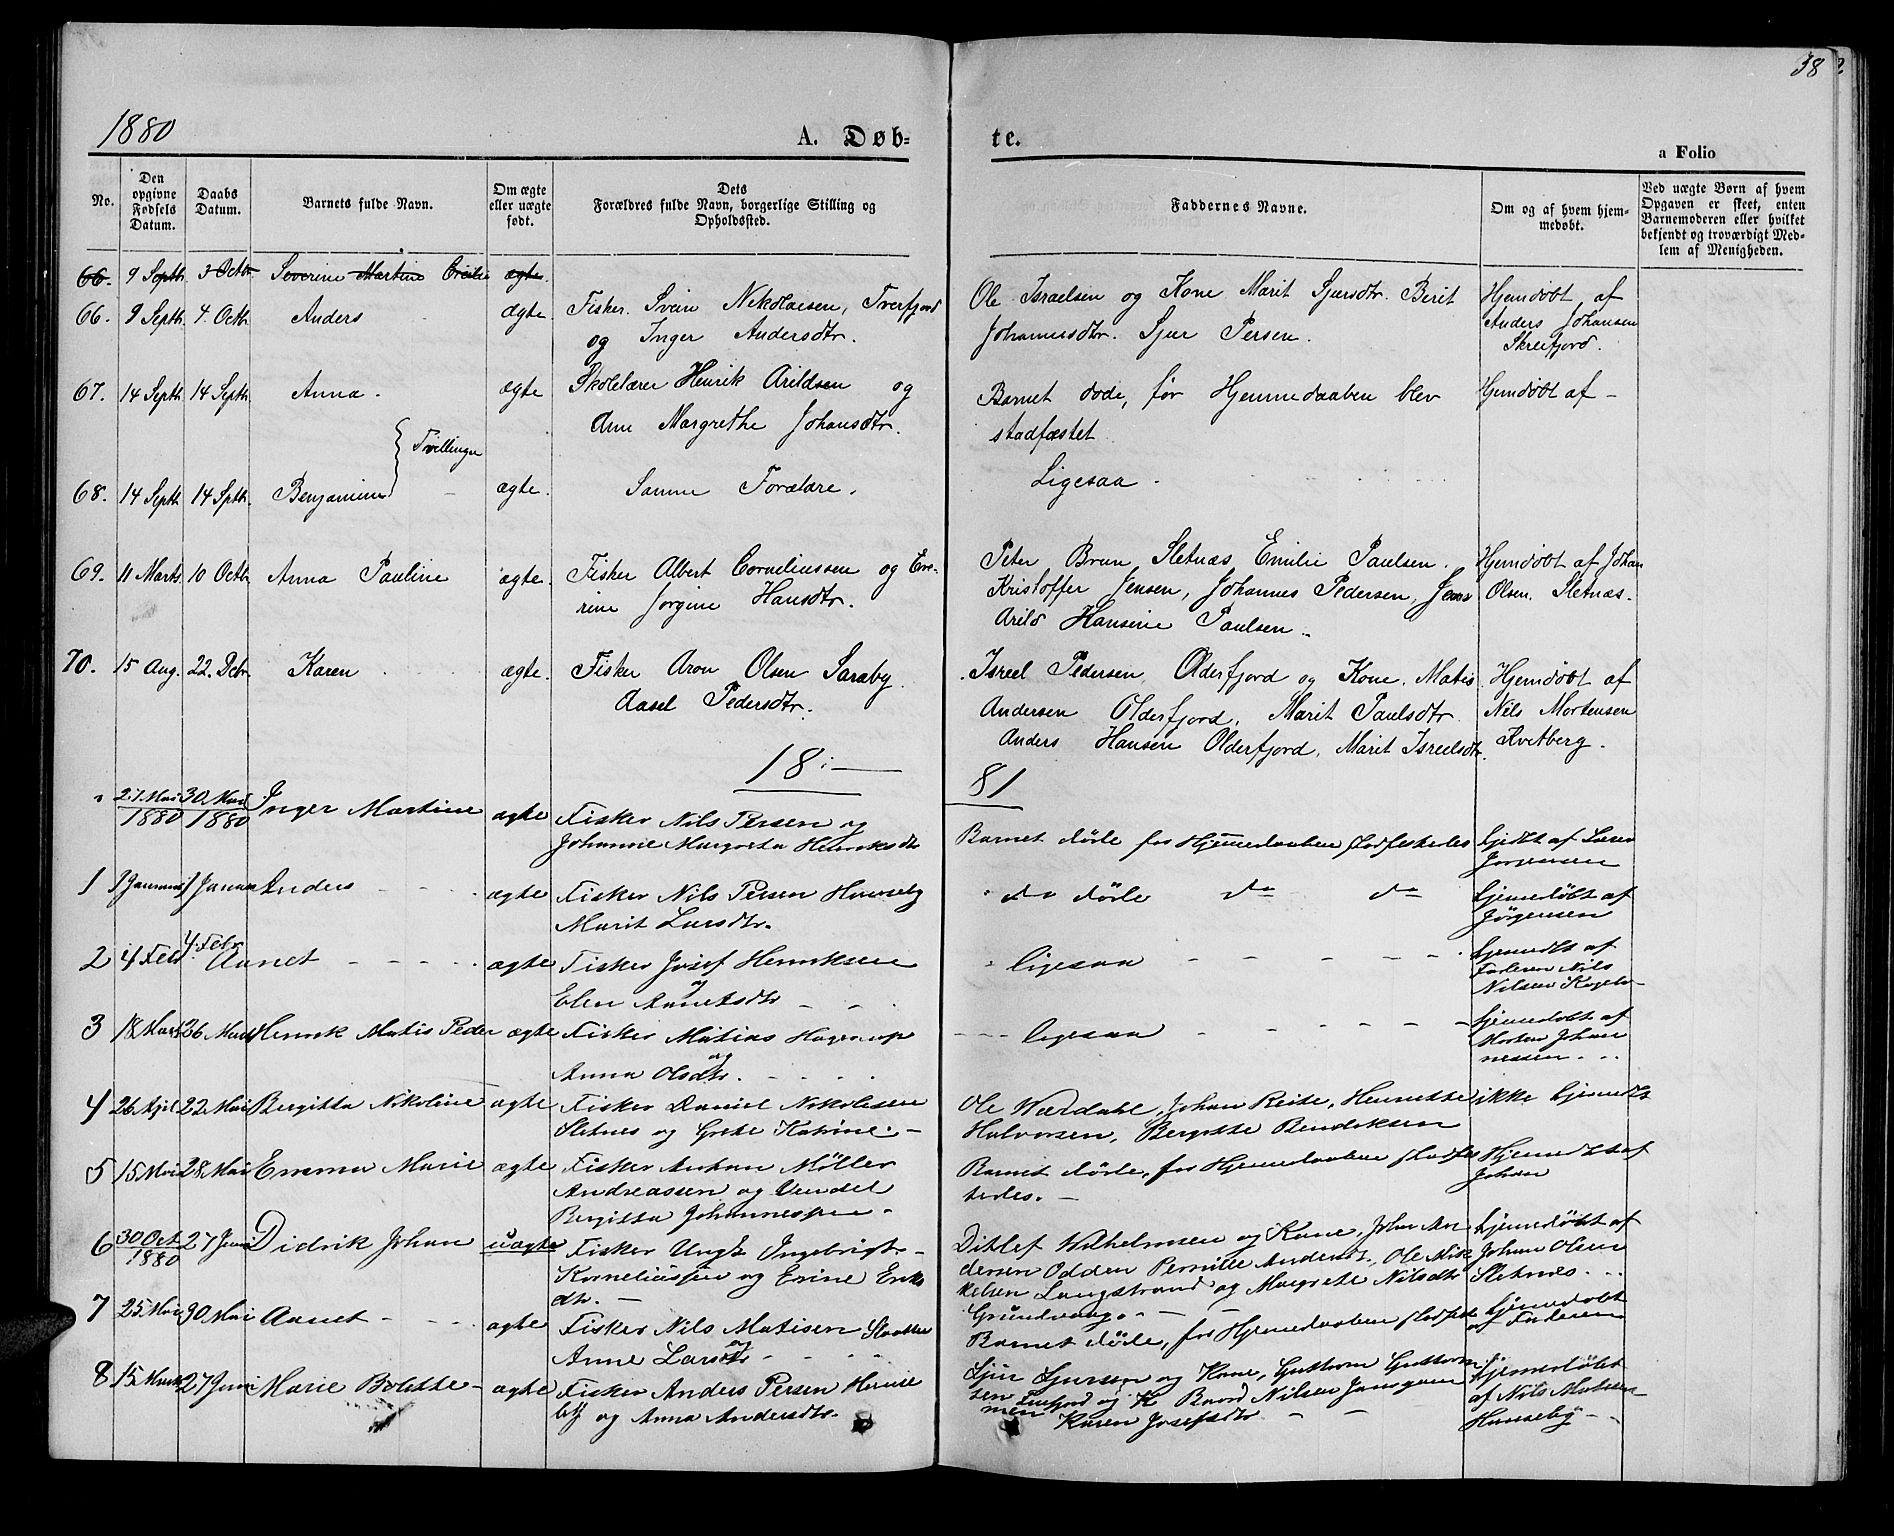 38
1880
A. Døb-
te.
a Folio
No.
Den opgivne Fødsels Datum.
Daabs Datum.
Barnets fulde Navn.
Om ægte eller uægte født.
Dets Forældres fulde Navn, borgerlige Stilling og Opholdssted.
Faddernes Navne.
Om og af hvem hjemmedøbt.
Ved uægte Børn af hvem Opgaven er skeet, enten Barnemoderen eller hvilket bekjendt og troværdigt Medlem af Menigheden.
66. 9 Septb. 3 Octb. Severine Martine Cecilie ægte.
66. 9 Septb. 4. Octb. Anders ægte. Fisker. Svein Nikolaesen, Tverfjord
og Inger Andersdtr.
Ole Israelsen og Kone Marit Sjursdtr. Berit
Johannesdtr. Sjur Persen.
Hjemdøbt af
Anders Johansen
Skreifjord.
67. 14 Septb. 14 Septb. Anna. ægte Skolelærer Henrik Arildsen og
Ane Margrethe Johansdtr.
Barnet døde, før Hjemmedaaben blev
stadfæstet
Hjemdøbt af -
Tvillinger
68. 14 Septb. 14 Sptb. Benjamine - ægte. Samme Forældre.
Ligesaa.
69. 11 Marts. 10 Octb. Anna Pauline ægte. Fisker Albert Corneliussen og Eve-
rine Jorgine Hansdtr.
Peter Brun Sletnæs Emilie Paulsen.
Kristoffer Jensen, Johannes Pedersen, Jens
Arild Hansine Paulsen.
Hjemdøbt af Johan
Olsen. Sletnæs.
70. 15 Aug. 22. Debr. Karen ægte. Fisker Aron Olsen Saraby.
Aasel Pedersdtr.
Isreel Pedersen, Olderfjord og Kone. Matis
Andersen Olderfjord. Marit Paulsdtr.
Anders Hansen Olderfjord. Marit Isreelsdtr.
Hjemdøbt af
Nils Mortensen
Kvitberg.
18:— 81
27. Mai 1880 30 Mai 1880 Inger Martine ægte Fisker Nils Persen og
Johanne Margreta Henriksdtr
Barnet døde før Hjemedaaben stadfestedes
Jørgensen
1 Januar Anders ægte Fisker Nils Persen Hønseby
Marit Larsdtr.
do døde do do
hjemedøbt af
Jørgensen
2 4 Feb 4. Febr Aanet ægte Fisker Josef Henriksen
og
Elen Aanetsdtr
ligesaa
hjemdt af
Faderen Nils
Nilsen
3 18 Marts 26 Marts Henrik Matis Peder ægte Fisker Matias Hagerup
og
Anna Olsdtr.
ligesaa
hjemedøbt af
Morten Johan
nessen
4 26 April 22 Mai Bergitta Nikoline ægte Fisker Daniel Nikolisen
Sletnes og Grete Katrine. -
Ole Værdahl, Johan Beite, Henrette
Halvorsen, Bergitte Bendiksen
ikke hjemdt
5 15 Mai 28 Mai Emma Marie ægte Fisker Anton Møller
Andreassen og Vendel
Bergitta Johannessen -
Barnet døde, før Hjemedaaben stadfes
tedes. -
Hjemdt af
Johan
6 30 Oct 1880 27 Juni Didrik Johan uægte Fisker Ungk Ingebrigt -
Korneliussen og Erine Eriks
dtr. -
Ditlef Wilhelmsen og Kone, Johan An
dersen Odden Pernille Andersdt., Ole Mik
kelsen Langstrand og Margrete Nilsdtr
Grundvaag.
hjemedøbt af
Johan Olsen
Sletnes
7 25 Mai 30 Mai Aanet ægte Fisker Nils Matisen
og
Anne Larsdtr
Barnet døde, før Hjemedaaben stadfest
hjemedøbt
af Faderen
8 15 Marts 27 Juni Marie Bolette ægte Fisker Anders Persen Hønse
by og Anna Andersdtr.
Sjur Sjursen og Kone, Guttorm Guttorm
sen og K Baard Nilsen
Karen Josefsdtr
hjemedøbt
af Nils Matisen
Hønseby